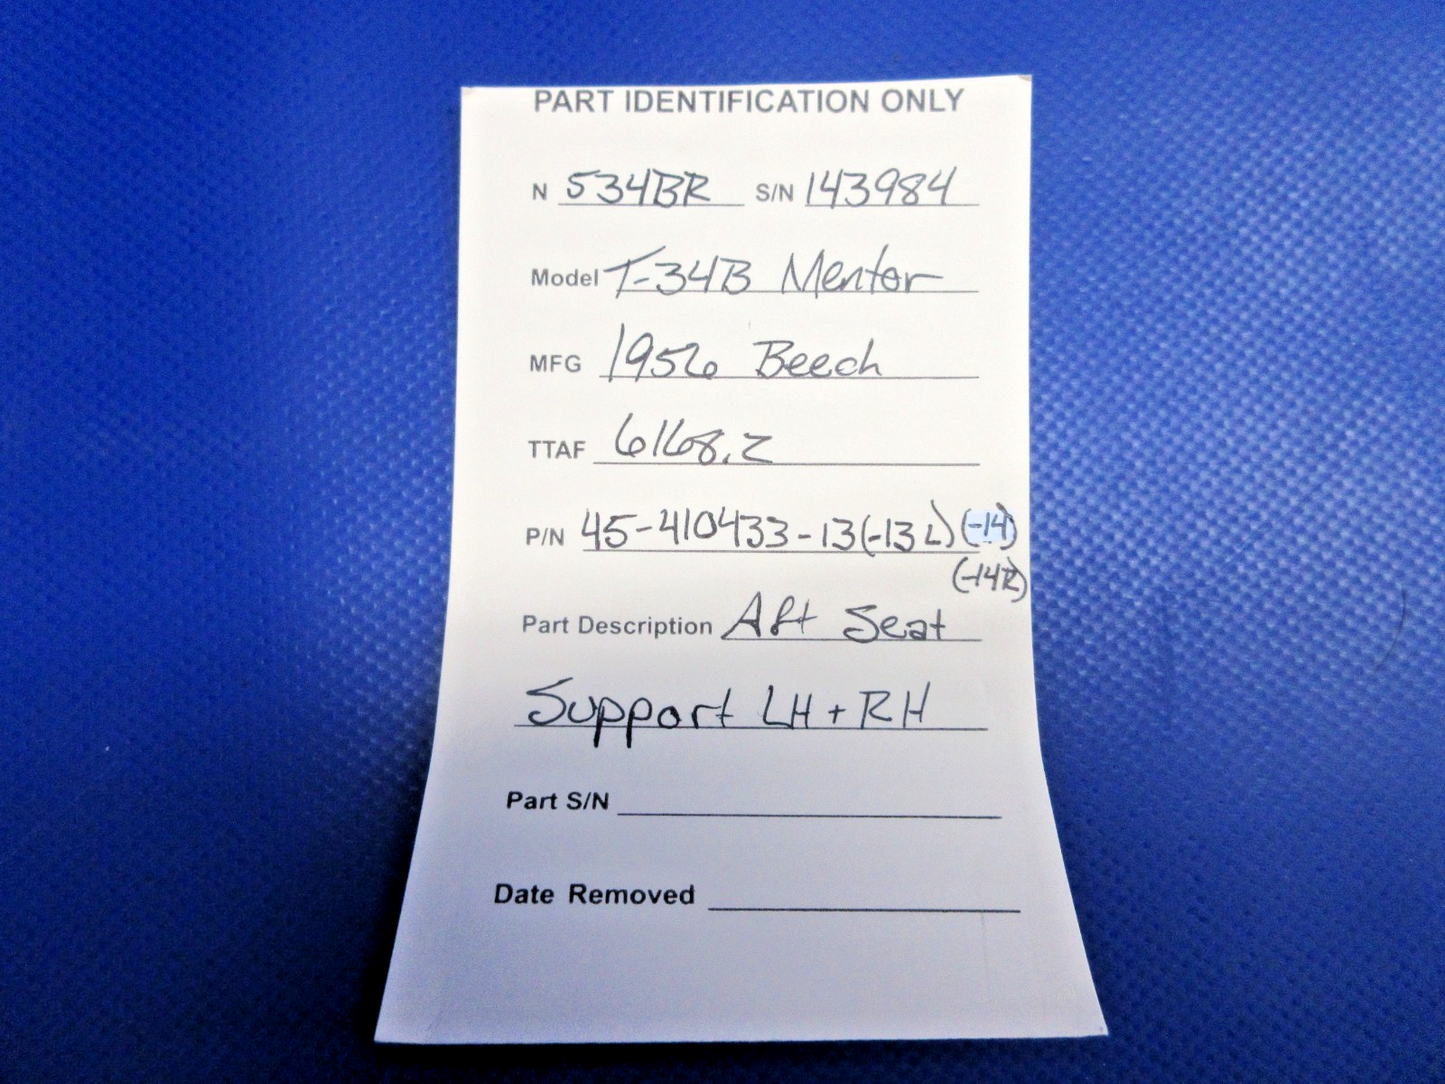 PART IDENTIFICATION ONLY
N 534BR S/N 143984
Model T-34B Mentor
MFG 1956 Beech
TTAF 6168.2
P/N 45-410433-13(-13L)(-14)
(-14R)
Part Description Aft Seat
Support LH + RH
Part S/N
Date Removed